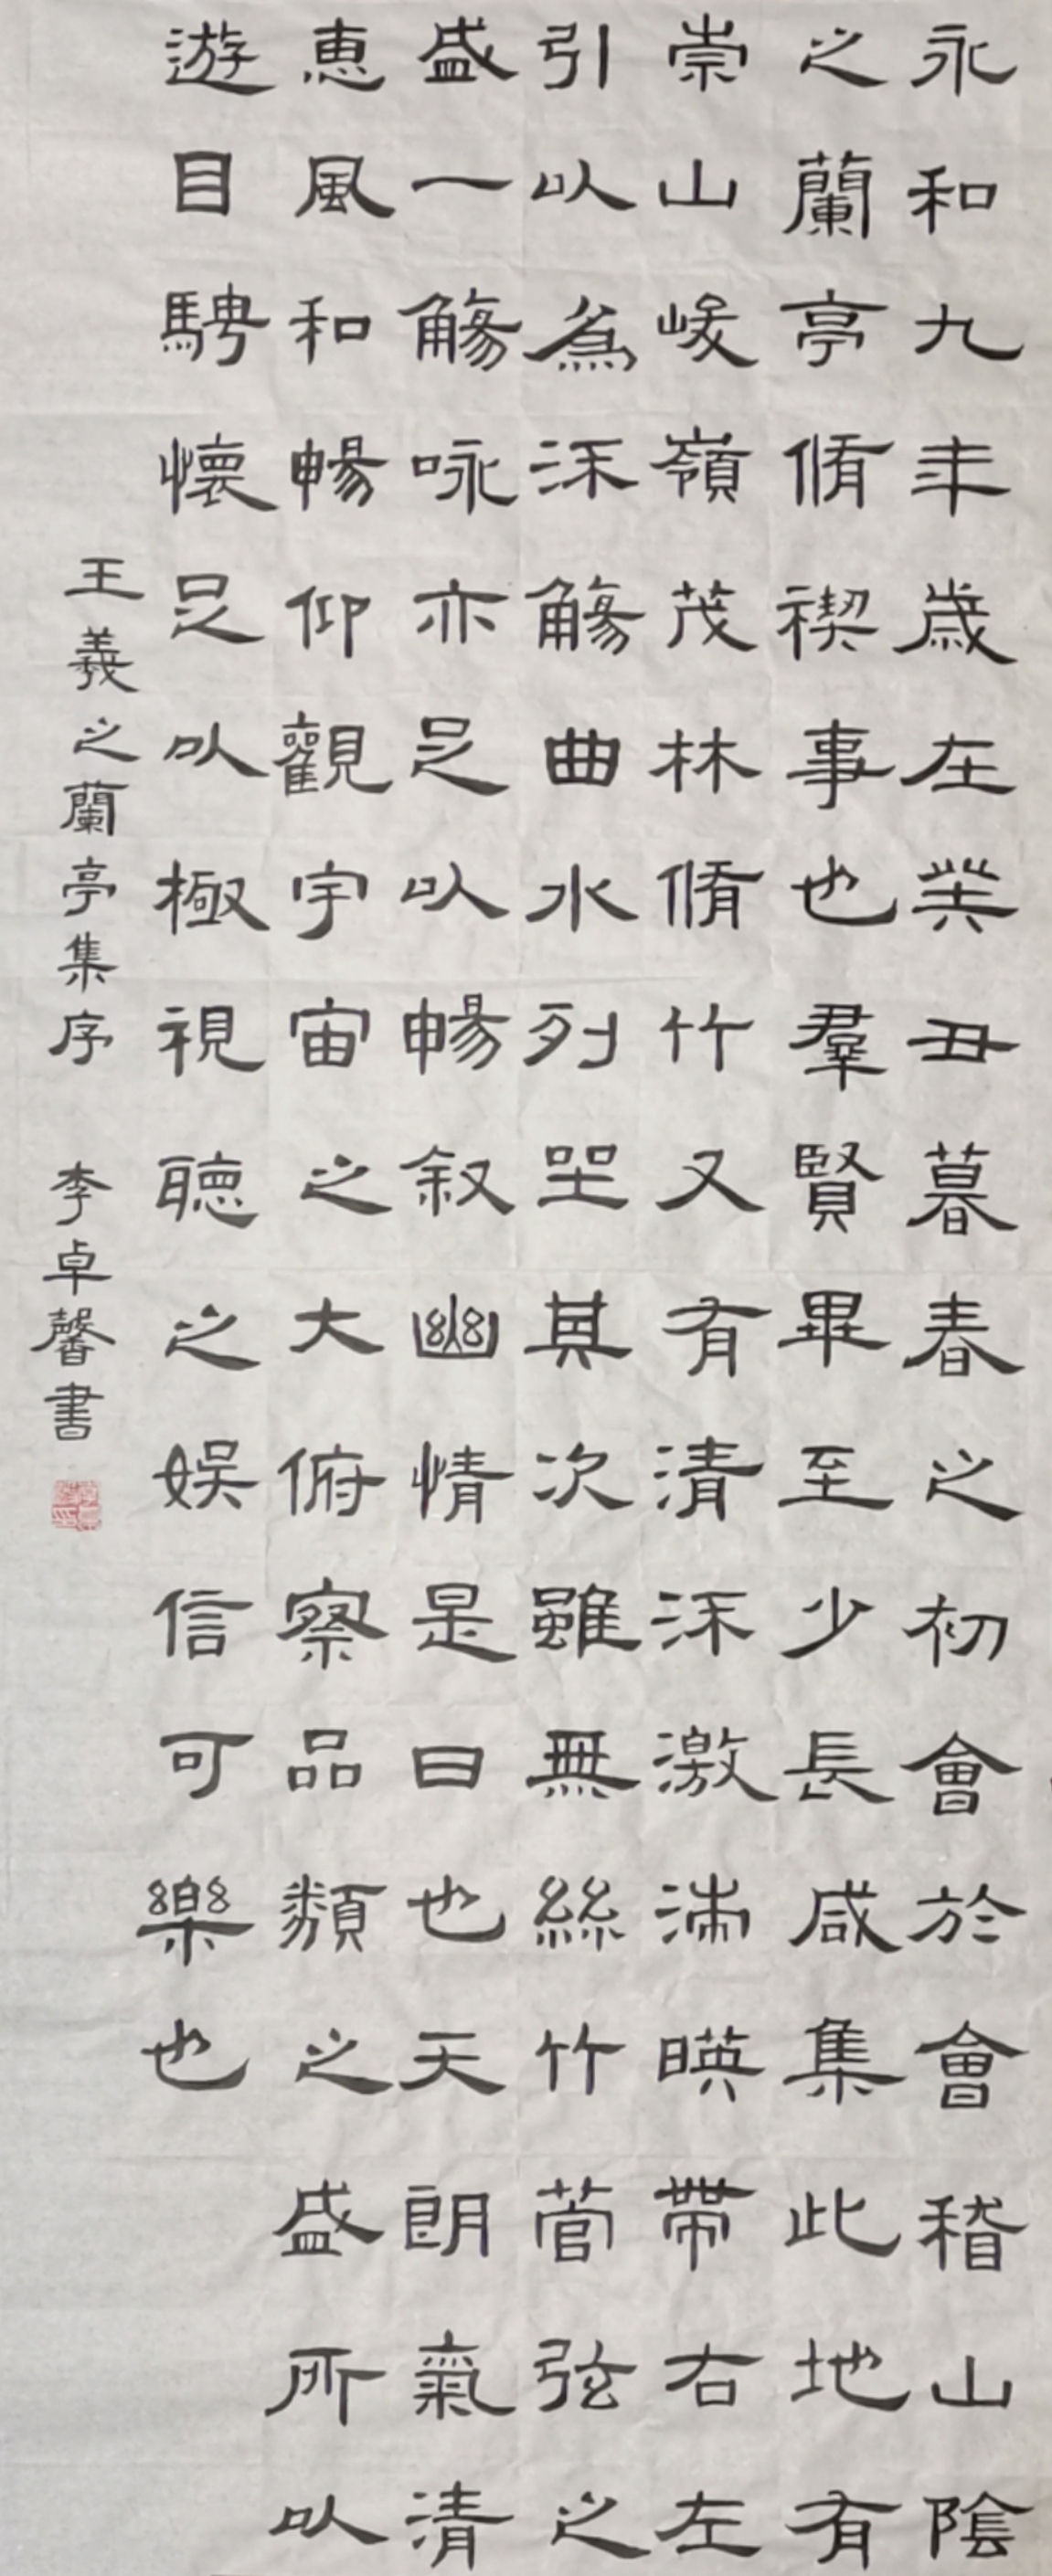 永和九年歲在癸丑暮春之初會於會稽山陰
之蘭亭脩禊事也羣賢畢至少長咸集此地有
崇山峻嶺茂林脩竹又有清流激湍暎帶右左
引以為流觴曲水列坐其次雖無絲竹管弦之
盛一觴咏亦足以暢叙幽情是日也天朗氣清
惠風和暢仰觀宇宙之大俯察品類之盛所以
遊目騁懷足以極視聽之娛信可樂也
王羲之蘭亭集序 李卓馨書